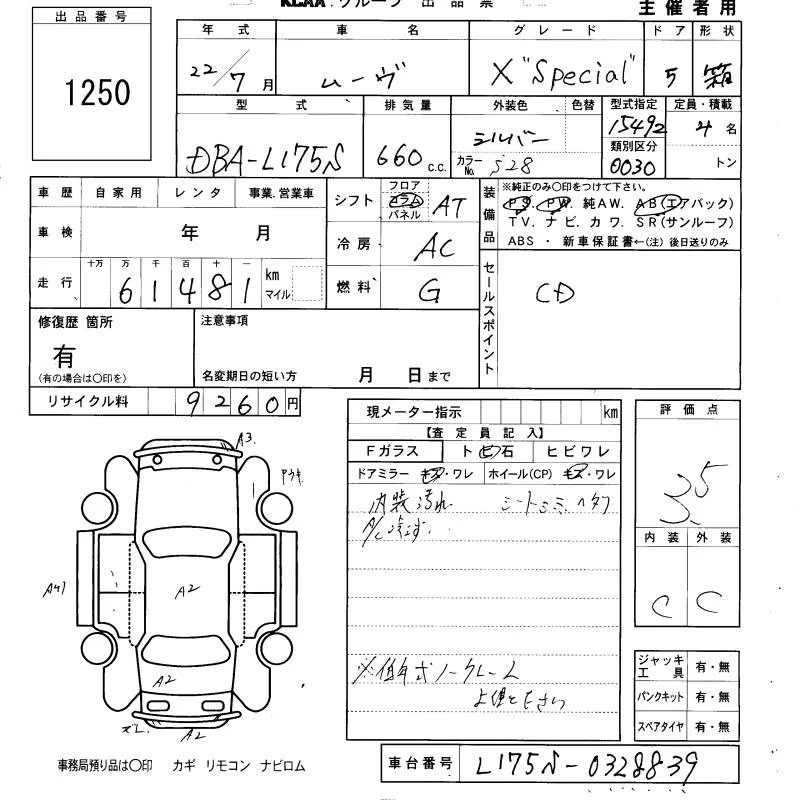 KCAA グループ 出品票
主催者用
出品番号
1250
年式 車名 グレード ドア 形状
22/7月 ムーヴ X "Special" 5 箱
型式 排気量 外装色 色替 型式指定 定員・積載
DBA-L175S 660 c.c. シルバー 15492 4名
類別区分
カラーNo. S28 0030 トン
車歴 自家用 レンタ 事業.営業車
シフト フロア コラム パネル AT
車検 年 月
冷房 AC
走行 十万 万 千 百 十 一
61481 km マイル
燃料 G
装備品 ※純正のみ○印をつけて下さい。
PS. PW. 純AW. AB(エアバック)
TV. ナビ. カワ. SR(サンルーフ)
ABS ・ 新車保証書←(注) 後日送りのみ
セールスポイント
CD
修復歴 箇所
有
(有の場合は○印を)
注意事項
名変期日の短い方 月 日まで
リサイクル料 9260円
現メーター指示 km
【査定員記入】
Fガラス トビ石 ヒビワレ
ドアミラー キズ・ワレ ホイール(CP) キズ・ワレ
内装汚れ シートシミ ヘタリ
A/C
評価点
3.5
内装 外装
C C
A3.
A2
A2
A2
※低年式ノークレーム
ジャッキ工具 有・無
パンクキット 有・無
スペアタイヤ 有・無
事務局預り品は○印 カギ リモコン ナビロム
車台番号 L175S-0328839